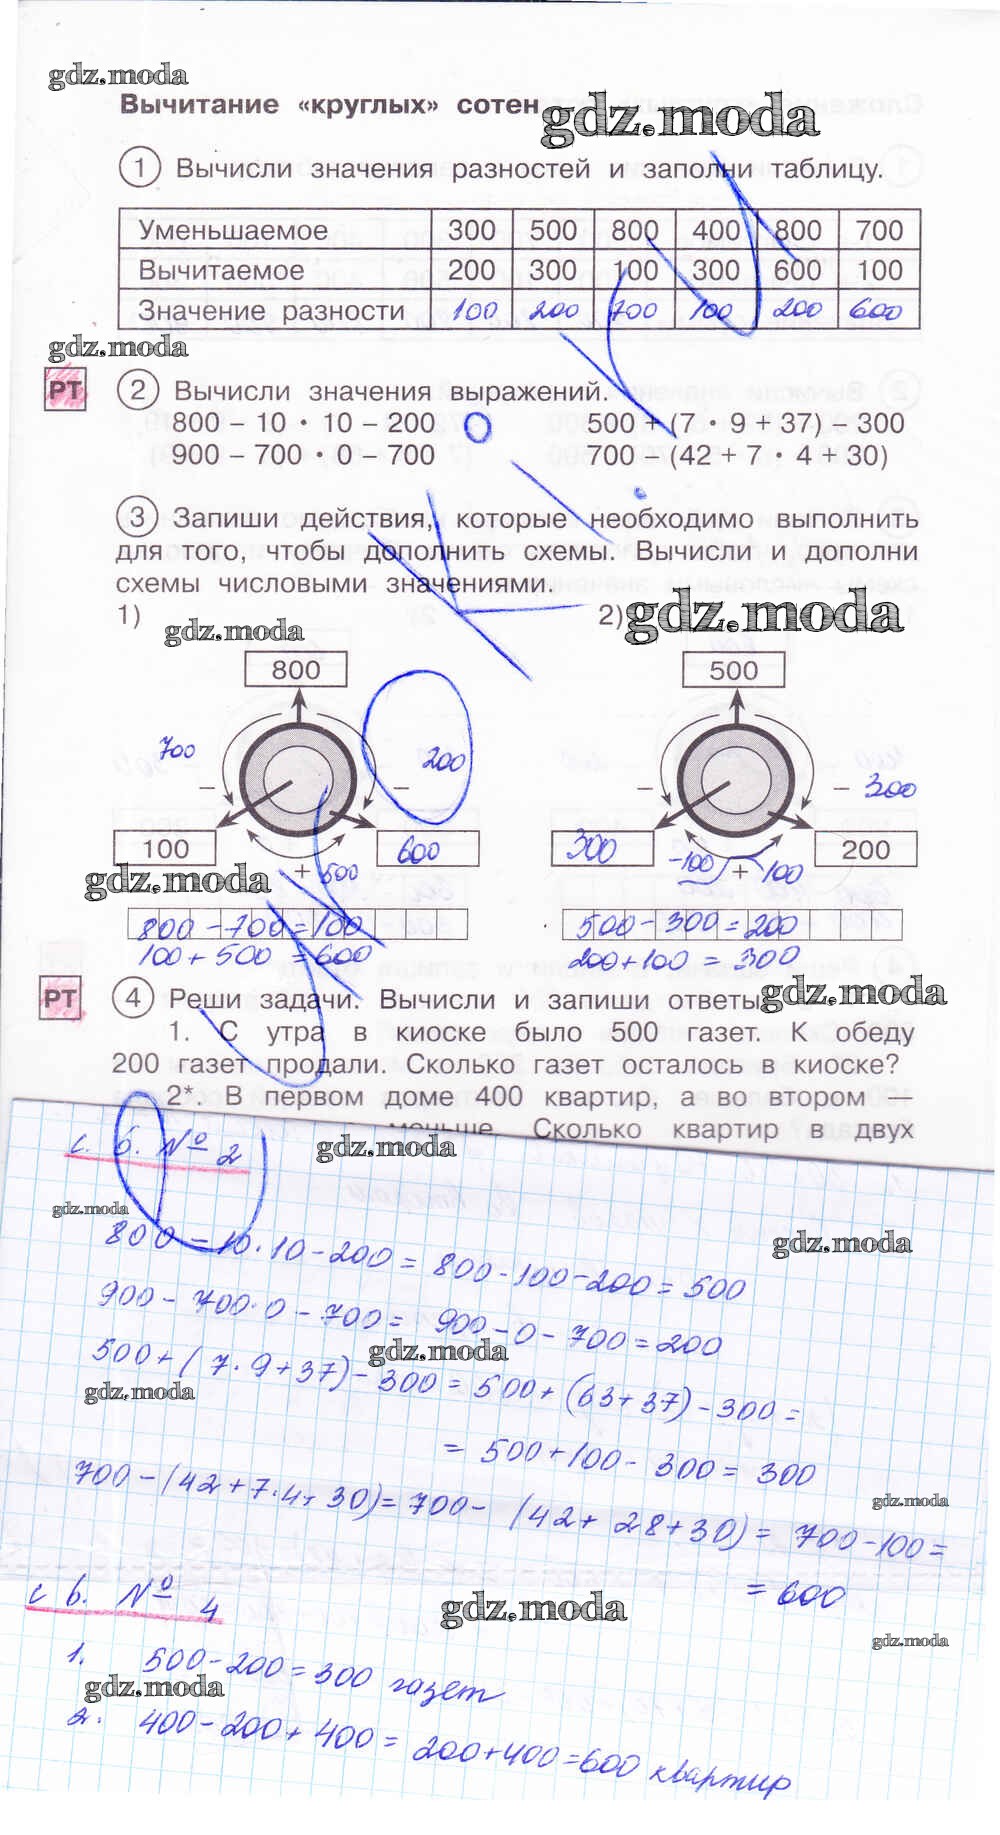 gdz.moda
Вычитание «круглых» сотен
gdz.moda
1 Вычисли значения разностей и заполни таблицу.
Уменьшаемое 300 500 800 400 800 700
Вычитаемое 200 300 100 300 600 100
Значение разности 100 200 700 100 200 600
gdz.moda
РТ 2 Вычисли значения выражений.
800 – 10 · 10 – 200 500 + (7 · 9 + 37) – 300
900 – 700 · 0 – 700 700 – (42 + 7 · 4 + 30)
3 Запиши действия, которые необходимо выполнить
для того, чтобы дополнить схемы. Вычисли и дополни
схемы числовыми значениями.
1) 2)
gdz.moda gdz.moda
800 500
700 200
– – – – 300
100 600 300 200
+ 500 -100 + 100
gdz.moda
800 - 700 = 100 500 - 300 = 200
100 + 500 = 600 200 + 100 = 300
gdz.moda
РТ 4 Реши задачи. Вычисли и запиши ответы
1. С утра в киоске было 500 газет. К обеду
200 газет продали. Сколько газет осталось в киоске?
2*. В первом доме 400 квартир, а во втором —
меньше. Сколько квартир в двух
с. 6. № 2
gdz.moda
gdz.moda
800 - 10 · 10 - 200 = 800 - 100 - 200 = 500
gdz.moda
900 - 700 · 0 - 700 = 900 - 0 - 700 = 200
gdz.moda
500 + (7 · 9 + 37) - 300 = 500 + (63 + 37) - 300 =
gdz.moda
= 500 + 100 - 300 = 300
700 - (42 + 7 · 4 + 30) = 700 - (42 + 28 + 30) = 700 - 100 =
gdz.moda
= 600
с 6. № 4
gdz.moda
gdz.moda
1. 500 - 200 = 300 газет
gdz.moda
2. 400 - 200 + 400 = 200 + 400 = 600 квартир